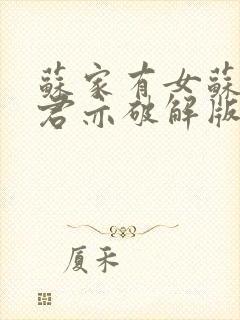 蘇家有女蘇
君亦破解版
厦禾